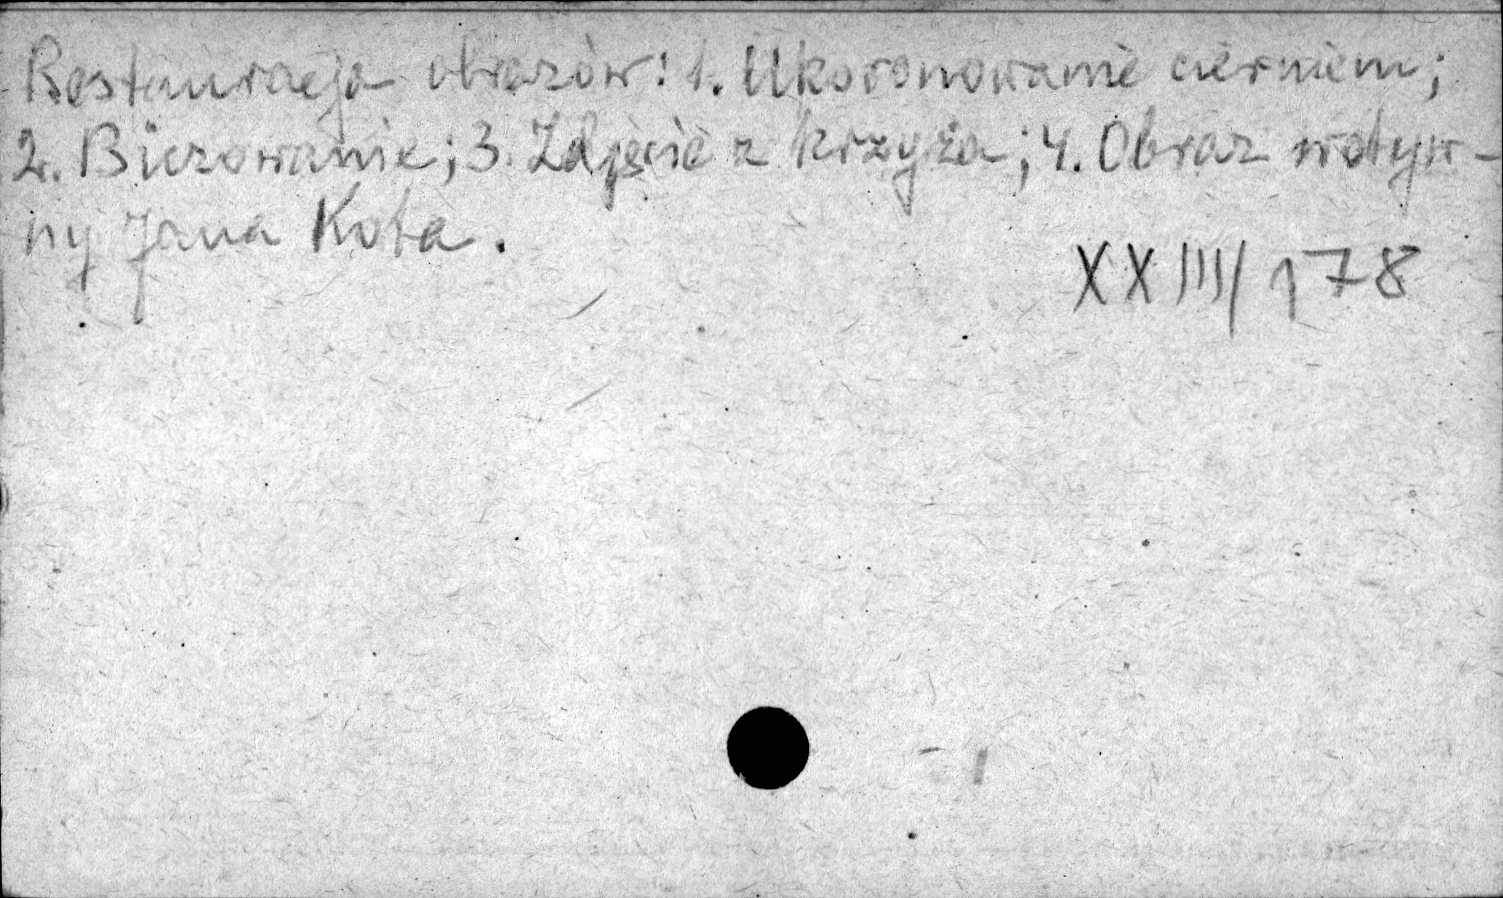 Restauracja obrazów: 1. Ukoronowanie cierniem;
2. Biczowanie; 3. Zdjęcie z krzyża; 4. Obraz wotyw-
ny Jana Kota.
XXIII/178